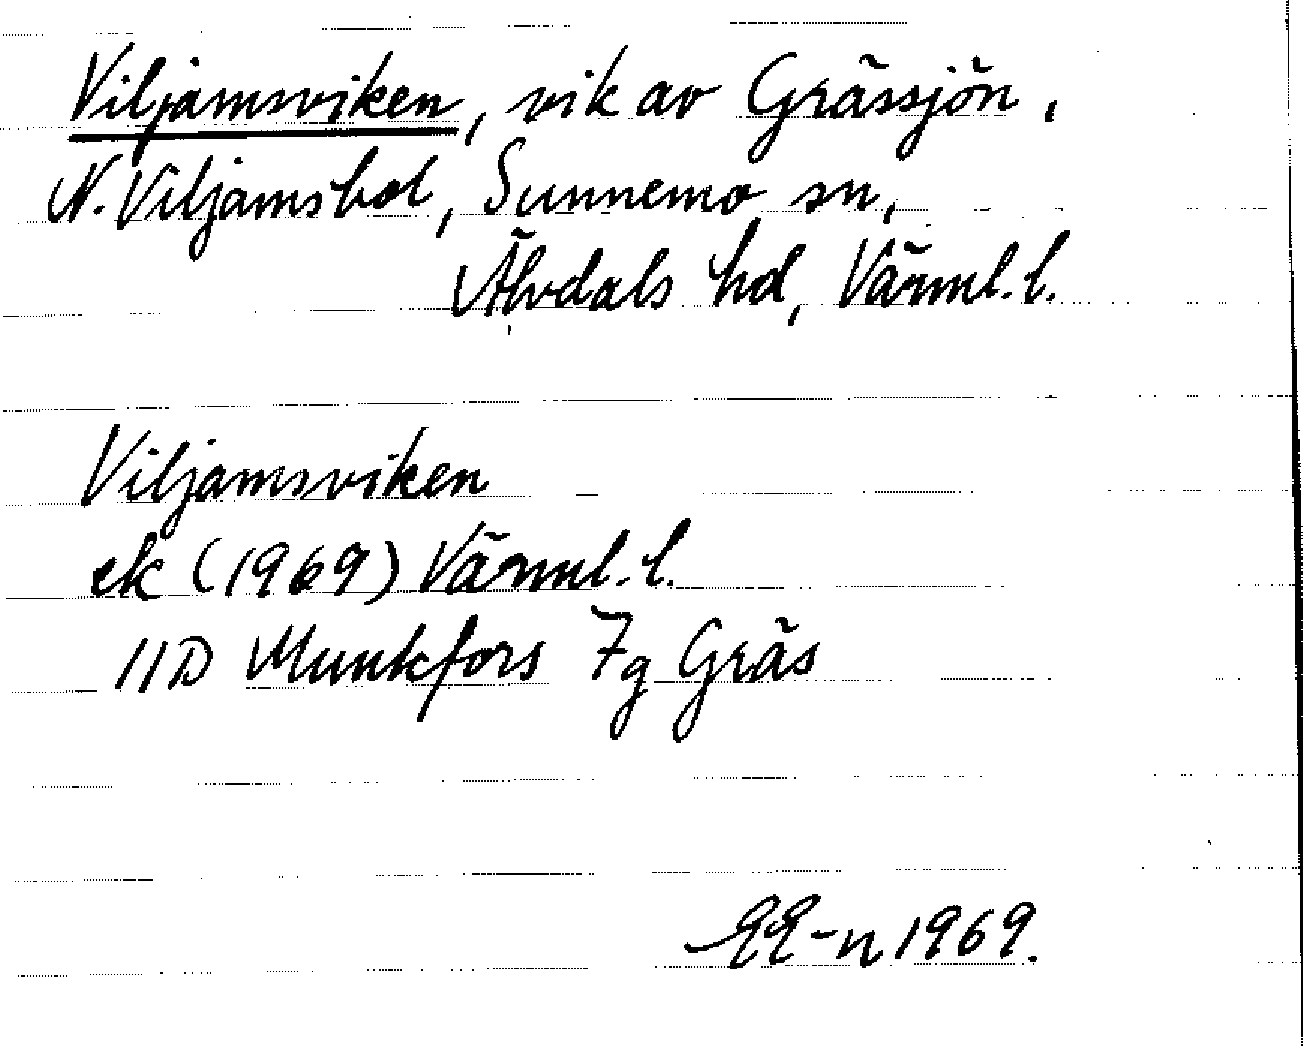 Viljamsviken, vik av Grässjön,
N. Viljamsbol, Sunnemo sn,
Älvdals hd, Värml. l.
Viljamsviken
ek (1969) Värml. l.
11D Munkfors 7g Gräs
1969.